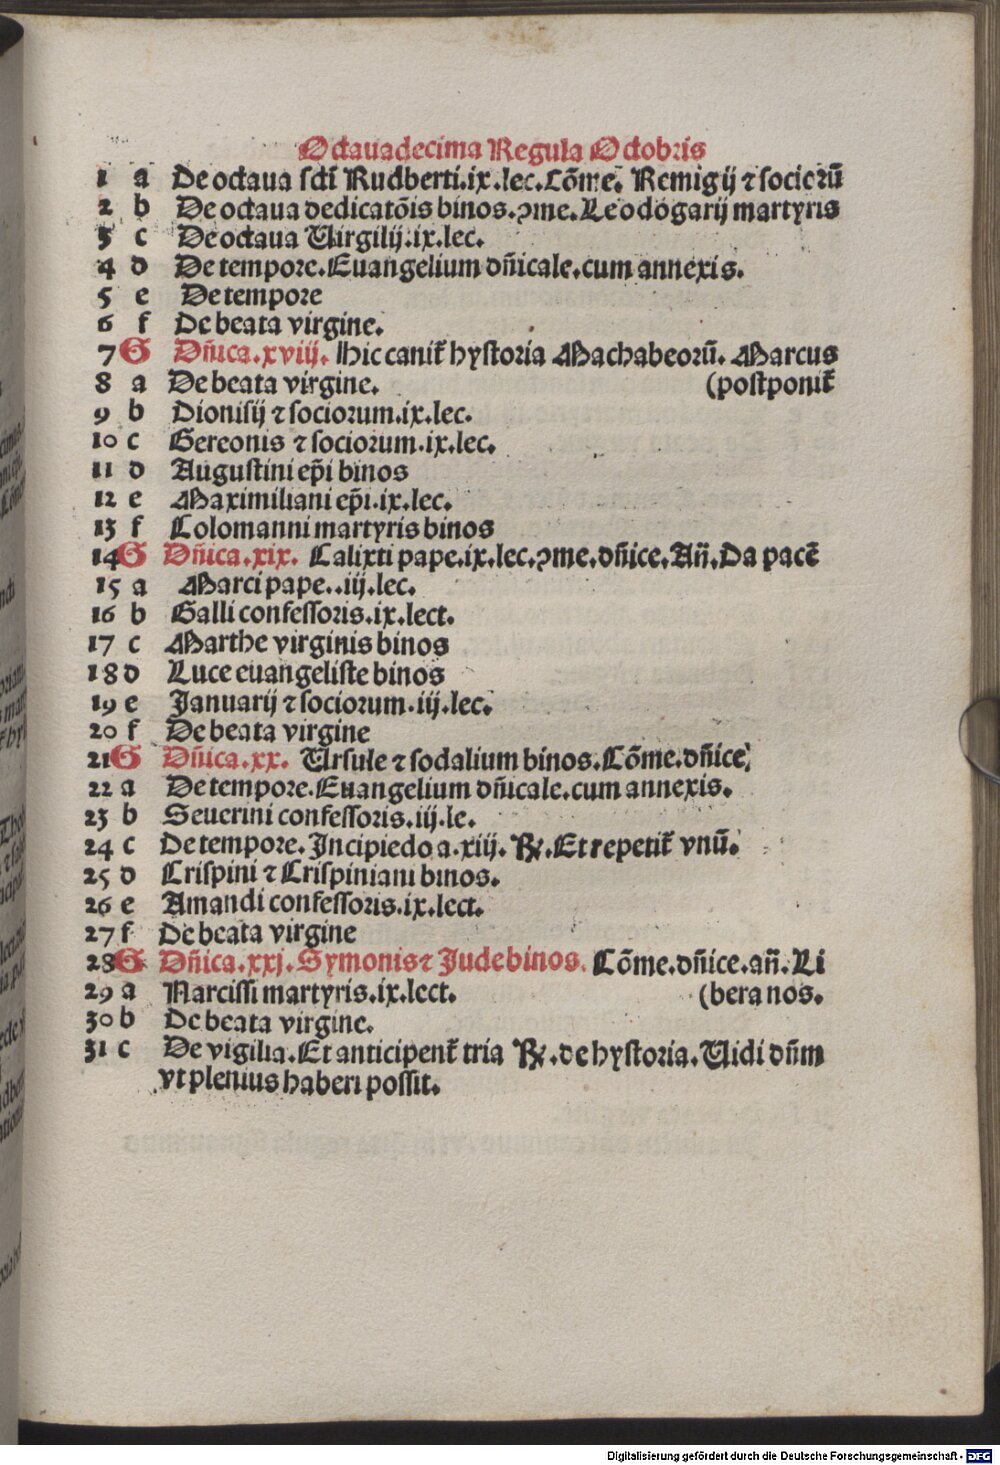 Octauadecima Regula Octobris
1 a De octaua sc̄ti Rudberti.ix.lec.Cōme. Remigij ⁊ sociorū
2 b De octaua dedicatōis binos.ꝯme.Leodogarij martyris
3 c De octaua Uirgilij.ix.lec.
4 d De tempore.Euangelium dn̄icale.cum annexis.
5 e De tempore
6 f De beata virgine.
7 G Dn̄ica.xviij. Hic canit᷑ hystoria Machabeorū. Marcus
8 a De beata virgine. (postponit᷑
9 b Dionisij ⁊ sociorum.ix.lec.
10 c Gereonis ⁊ sociorum.ix.lec.
11 d Augustini ep̄i binos
12 e Maximiliani ep̄i.ix.lec.
13 f Colomanni martyris binos
14 G Dn̄ica.xix. Calixti pape.ix.lec.ꝯme.dn̄ice.An̄.Da pacē
15 a Marci pape..iij.lec.
16 b Galli confessoris.ix.lect.
17 c Marthe virginis binos
18 d Luce euangeliste binos
19 e Januarij ⁊ sociorum.iij.lec.
20 f De beata virgine
21 G Dn̄ica.xx. Ursule ⁊ sodalium binos.Cōme.dn̄ice.
22 a De tempore.Euangelium dn̄icale.cum annexis.
23 b Seuerini confessoris.iij.le.
24 c De tempore.Incipiedo a.xiij. ℟.Et repetit᷑ vnū.
25 d Crispini ⁊ Crispiniani binos.
26 e Amandi confessoris.ix.lect.
27 f De beata virgine
28 G Dn̄ica.xxj.Symonis ⁊ Jude binos. Cōme.dn̄ice.an̄.Li
29 a Narcissi martyris.ix.lect. (bera nos.
30 b De beata virgine.
31 c De vigilia.Et anticipent᷑ tria ℟.de hystoria.Uidi dn̄m
vt plenius haberi possit.
Digitalisierung gefördert durch die Deutsche Forschungsgemeinschaft - DFG